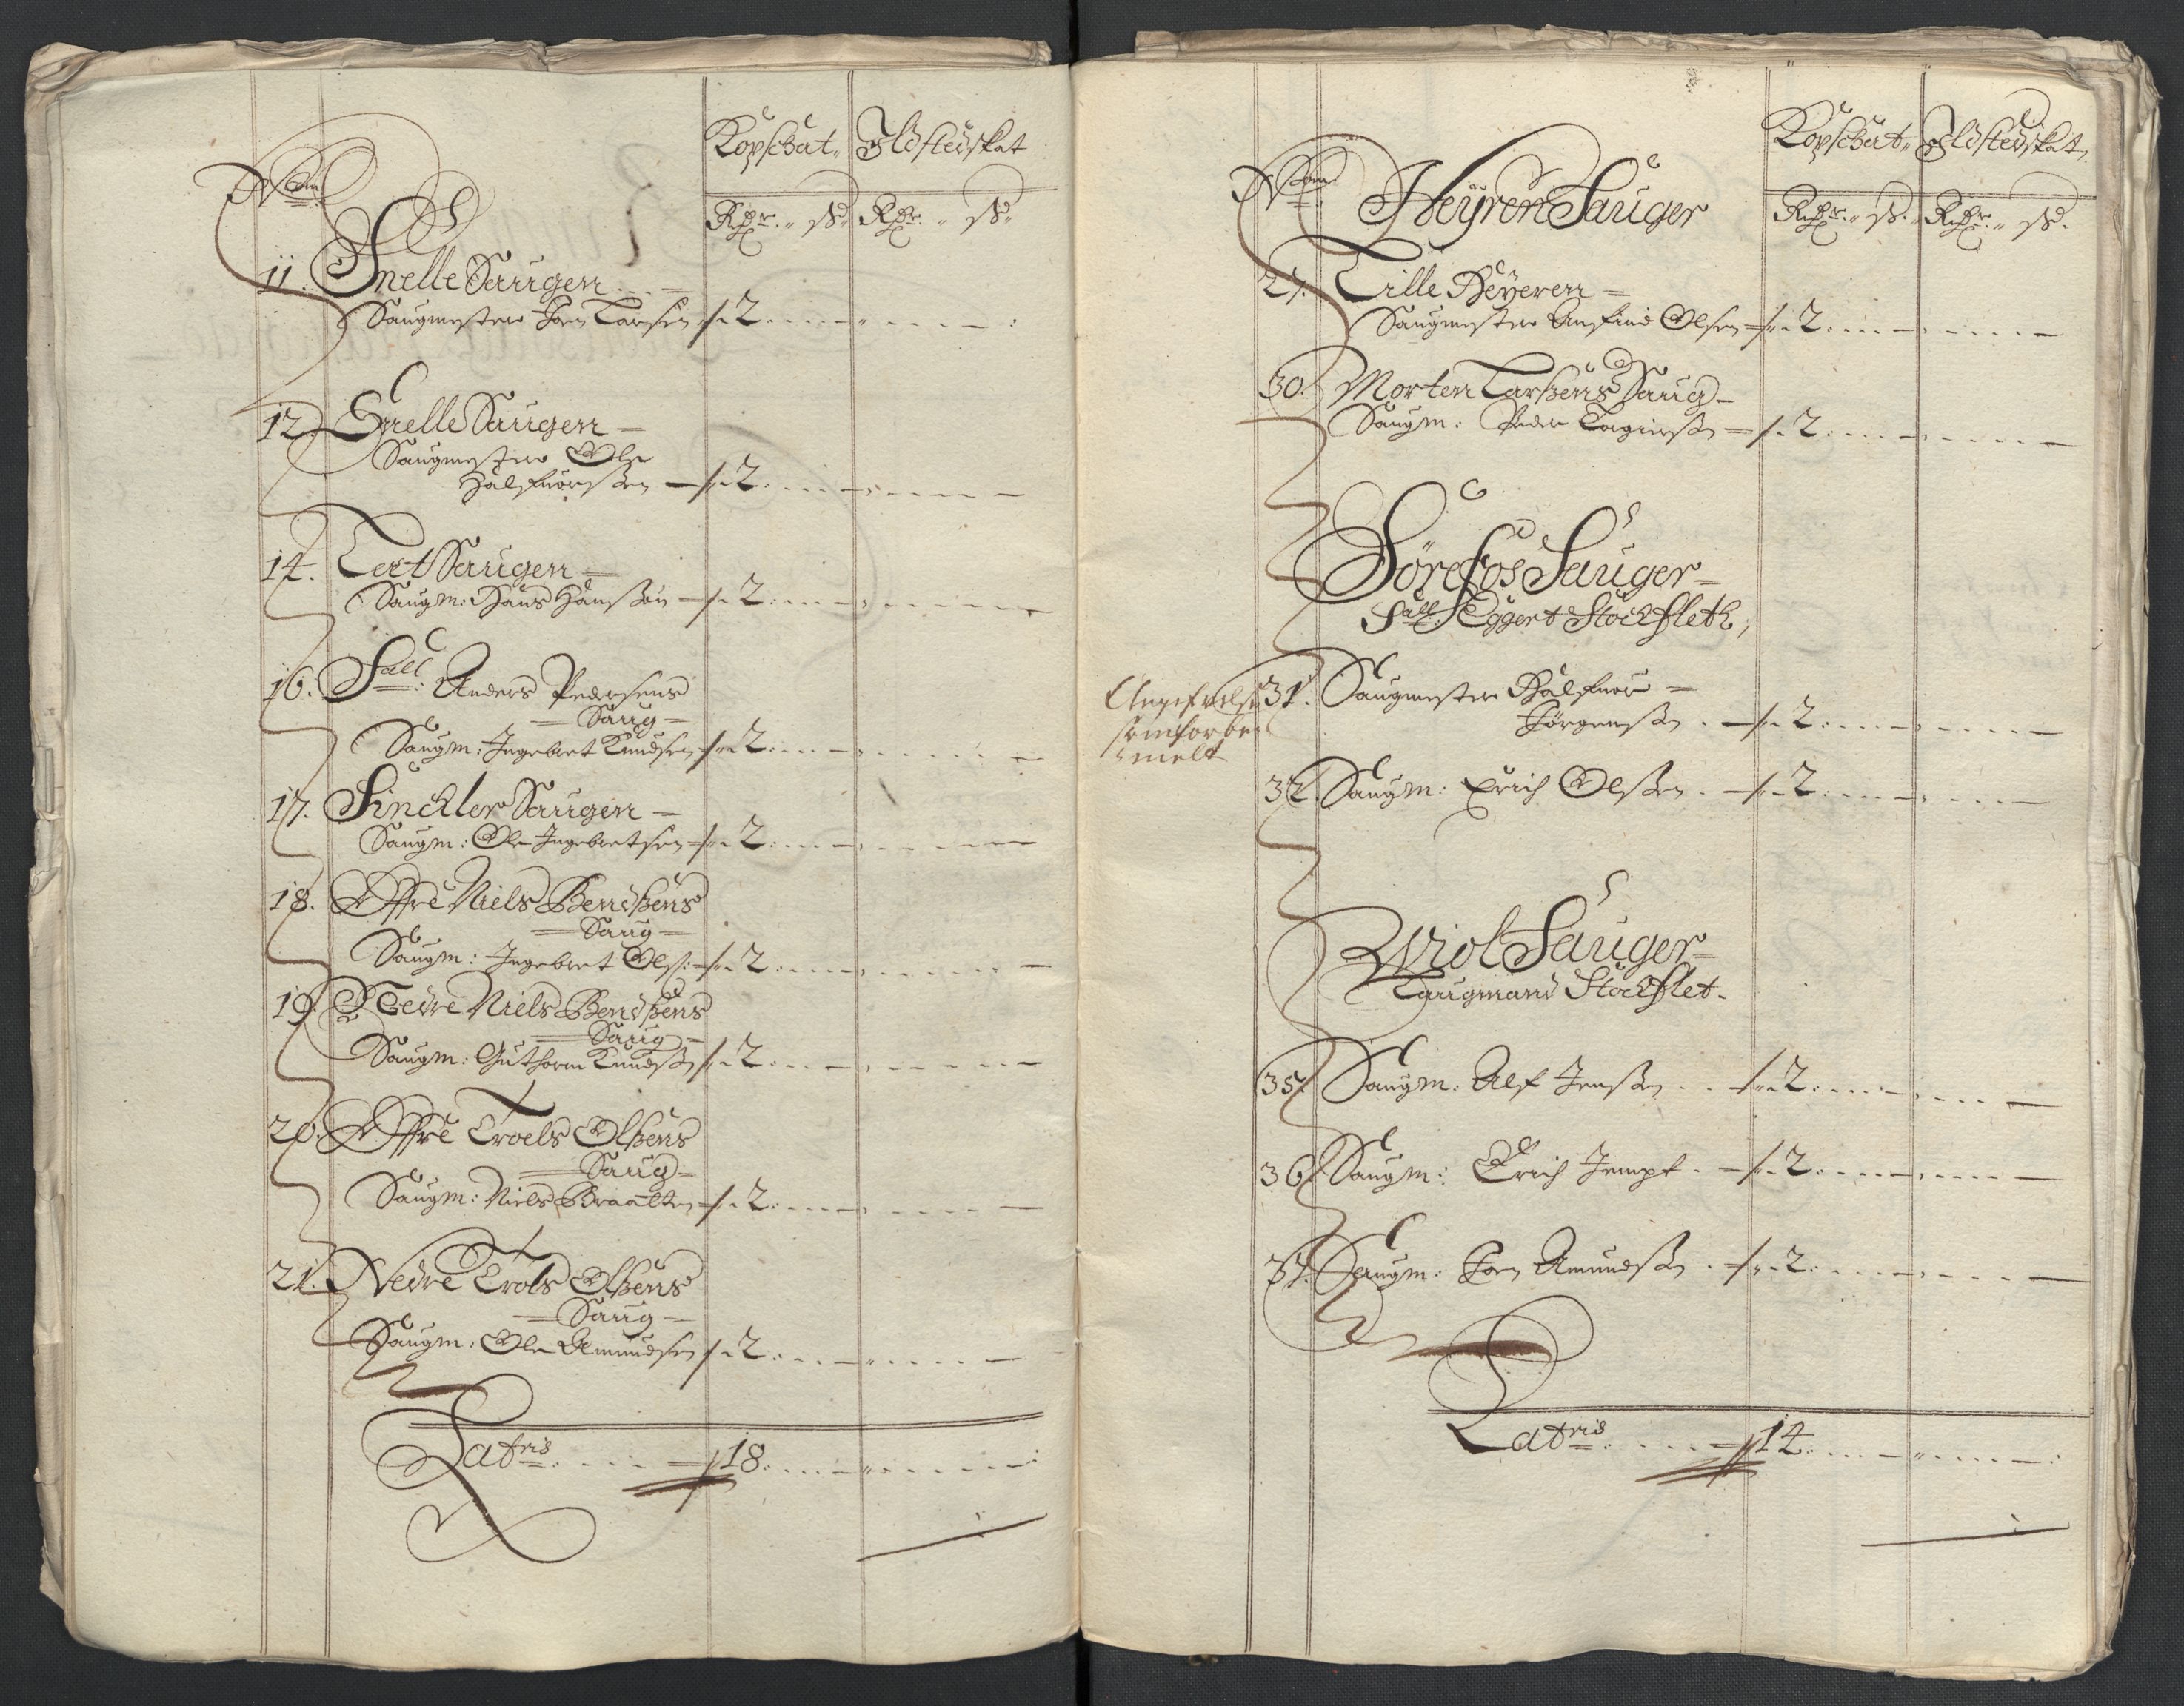 Kopschat Ildstedskat
Nom
Rixdr. ß Rixdr. ß
11. Snelle Saugen
Saugmester Joen Larsen 2
12 Snelle Saugen
Saugmester Ole
Halfuorsen 2
14. Tart Saugen
Saugm: Hans Hanssøn 2
16. Sall: Anders Pedersens
Saug
Saugm: Ingebret Knudsen 2
17. Finckler Saugen
Saugm: Ole Ingebretsen 2
18. Øffre Niels Bendsens
Saug
Saugm: Ingebret Ols: 2
19. Nedre Niels Bendsens
Saug
Saugm: Guthorm Knudsen 2
20. Øffre Troels Olsens
Saug
Saugm: Niels Braatten 2
21. Nedre Trols Olsens
Saug
Saugm: Ole Amundsen 2
Latris 18
Kopschat Ildstedskat
Nom Heyren Sauger
Rixdr. ß. Rixdr. ß.
27. Lille Heyeren
Saugmester Anfind Olsen 2
30. Morten Larsens Saug
Saugm: Peder 2
Sørefos Sauger
Sall: Eggert Stockfleth,
31. Saugmester Halfuor
Jørgensen 2
som forbe
melt
32. Saugm: Erich Olsen 2
Wiol Sauger
Laugmand Stockflet
35. Saugm: Alf Jensen 2
36. Saugm: Erich Jempt 2
37. Saugm: Joen Amundsen 2
Latris 14